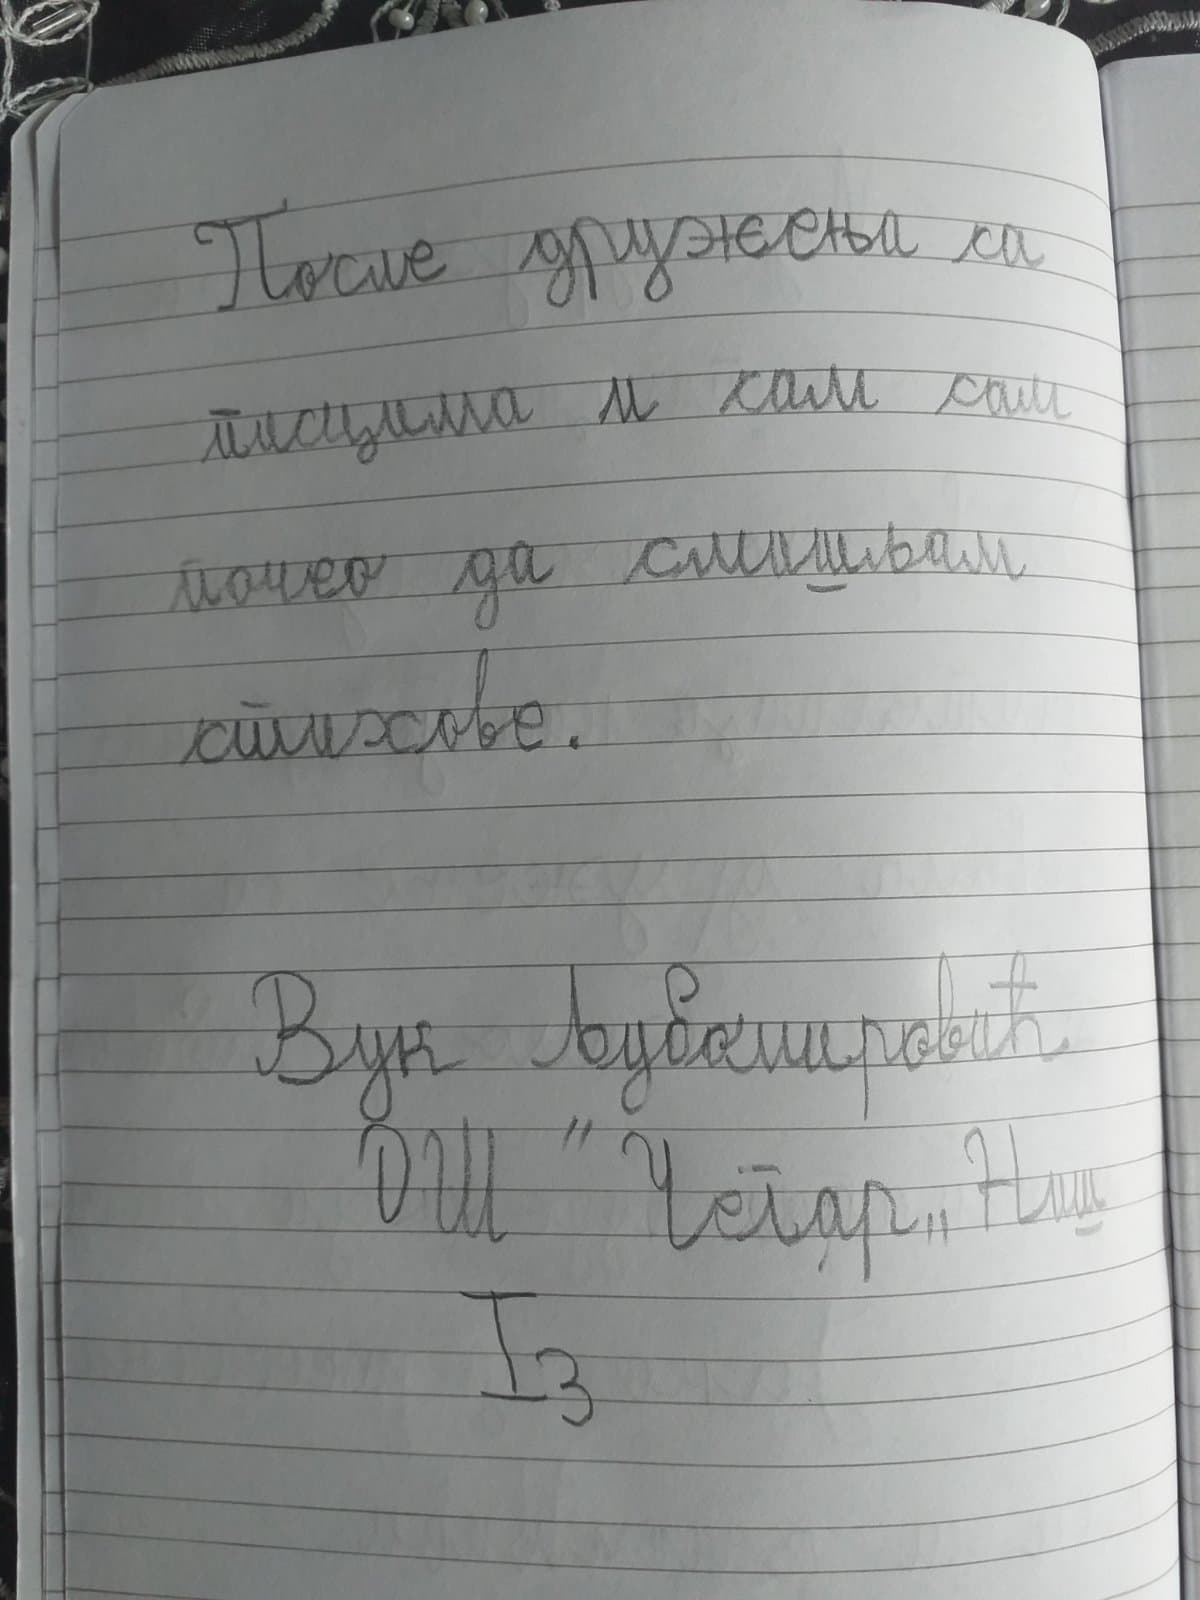 После дружења са
писцима и сам сам
почео да смишљам
стихове.
Вук Љубомировић
ОШ " Чегар„ Ниш
I3